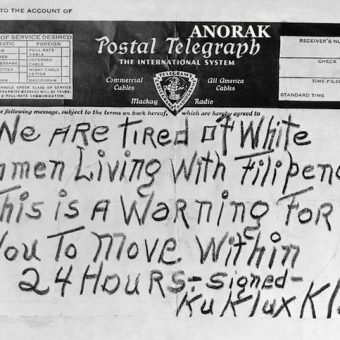 TO THE ACCOUNT OF
OF SERVICE DESIRED
ESTIC FOREIGN
FULL-RATE
CABLE
DEFERRED
CABLE
LETTER
RADIOGRAM
SHOULD CHECK CLASS OF SERVICE
A FULL-RATE COMMUNICATION.
ANORAK
Postal Telegraph
THE INTERNATIONAL SYSTEM
Commercial Cables
All America Cables
Mackay Radio
RECEIVER'S NU
CHECK
TIME FILE
STANDARD TIME
following message, subject to the terms on back hereof, which are hereby agreed to
We ARe Tired of White
men Living With Filipen
This is A Warning For
You To Move Within
24 Hours - Signed -
Ku Klux Kl